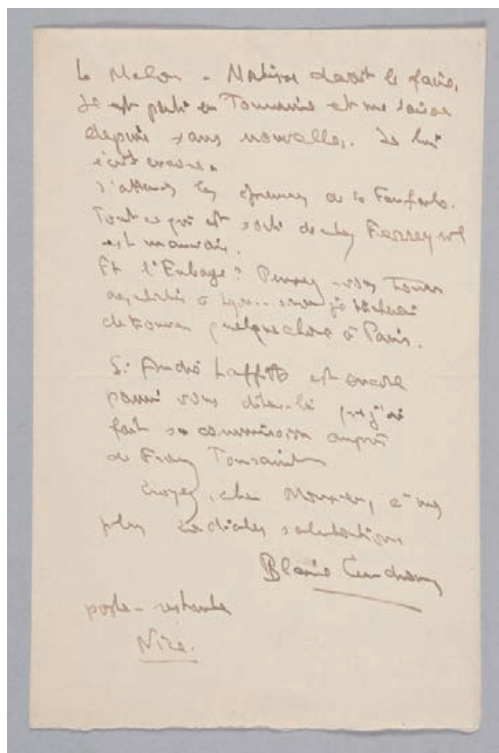 devait le faire.
Il est parti en Touraine et me laisse
depuis sans nouvelles. Je lui
écrit encore.
J'attends les épreuves de la Fanfarlo.
Tout ce qui est sorti de chez
est mauvais.
Et l'Eubage? Pensez-vous
à Lyon.. sinon je tâcherai
de trouver quelque chose à Paris.
Si André Laffitte est encore
parmi vous dites-lui que j'ai
fait sa commission auprès
de Franz Toussaint
Croyez, cher Monsieur, à mes
plus cordiales salutations
Blaise Cendrars
poste-restante
Nice.